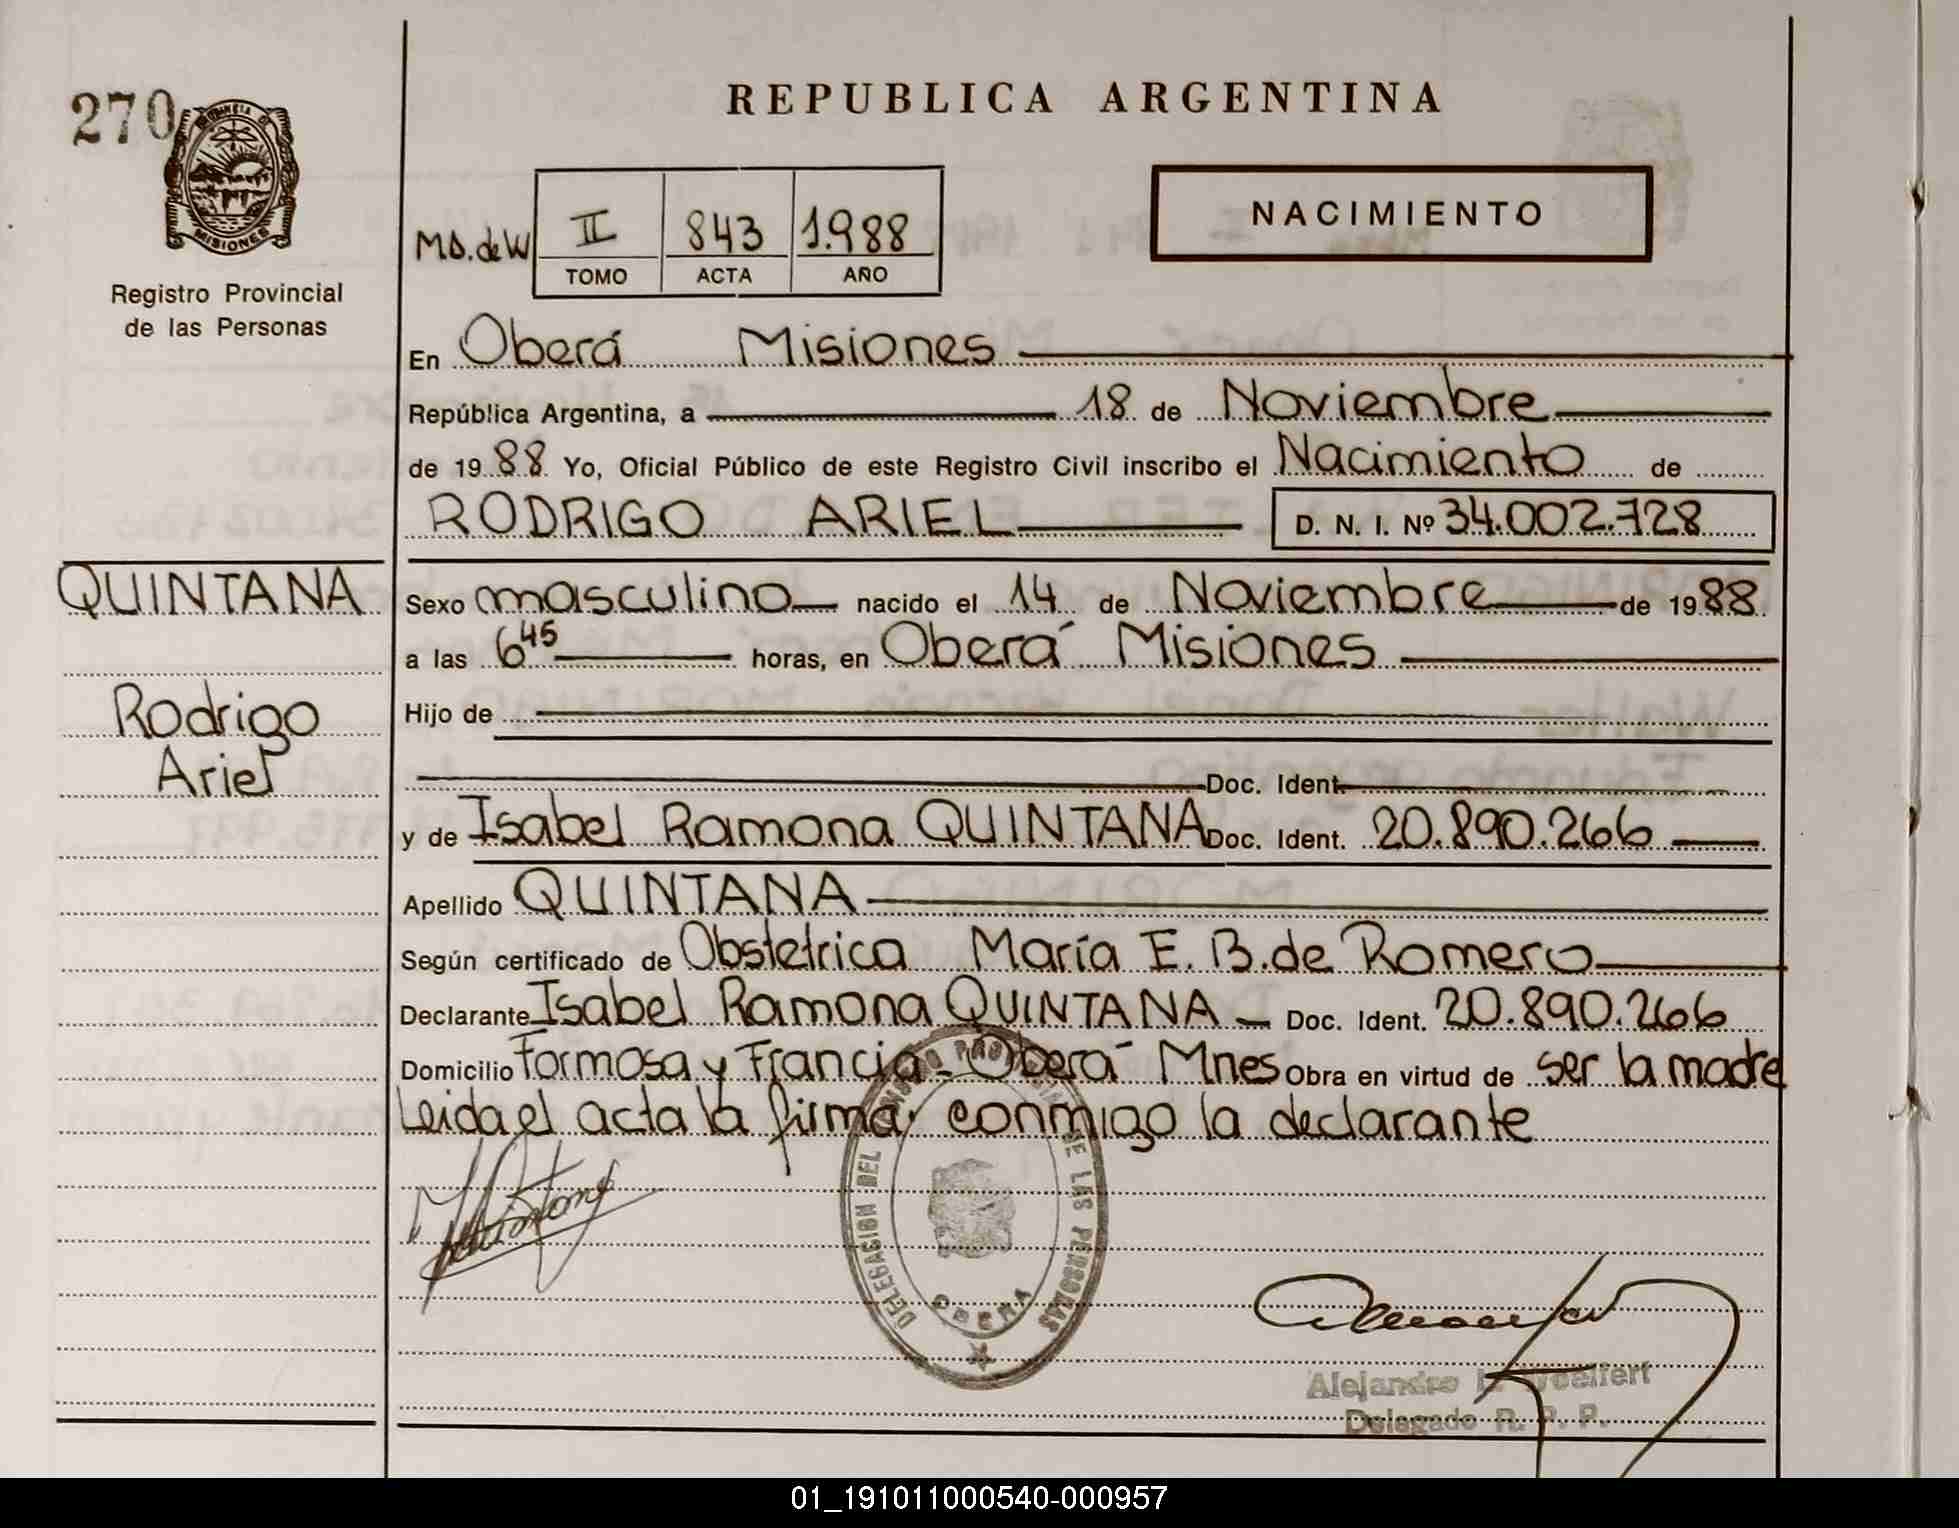 270
PROVINCIA D
MISIONES
Registro Provincial
de las Personas
REPUBLICA ARGENTINA
NACIMIENTO
M.D. de W II 843 1.988
TOMO ACTA AÑO
En Oberá Misiones
República Argentina, a 18 de Noviembre
de 1988 Yo, Oficial Público de este Registro Civil inscribo el Nacimiento de
RODRIGO ARIEL D. N. I. Nº 34.002.728
QUINTANA
Rodrigo
Ariel
Sexo masculino nacido el 14 de Noviembre de 1988
a las 6 45 horas, en Oberá Misiones
Hijo de
Doc. Ident.
y de Isabel Ramona QUINTANA Doc. Ident. 20.890.266
Apellido QUINTANA
Según certificado de Obstetrica María E. B. de Romero
Declarante Isabel Ramona QUINTANA Doc. Ident. 20.890.266
Domicilio Formosa y Francia - Oberá Mnes Obra en virtud de ser la madre
Leida el acta la firma conmigo la declarante
DELEGACION DEL REGISTRO PROVINCIAL DE LAS PERSONAS
OBERA
Alejandro Woelfert
Delegado R. P. P.
01_191011000540-000957